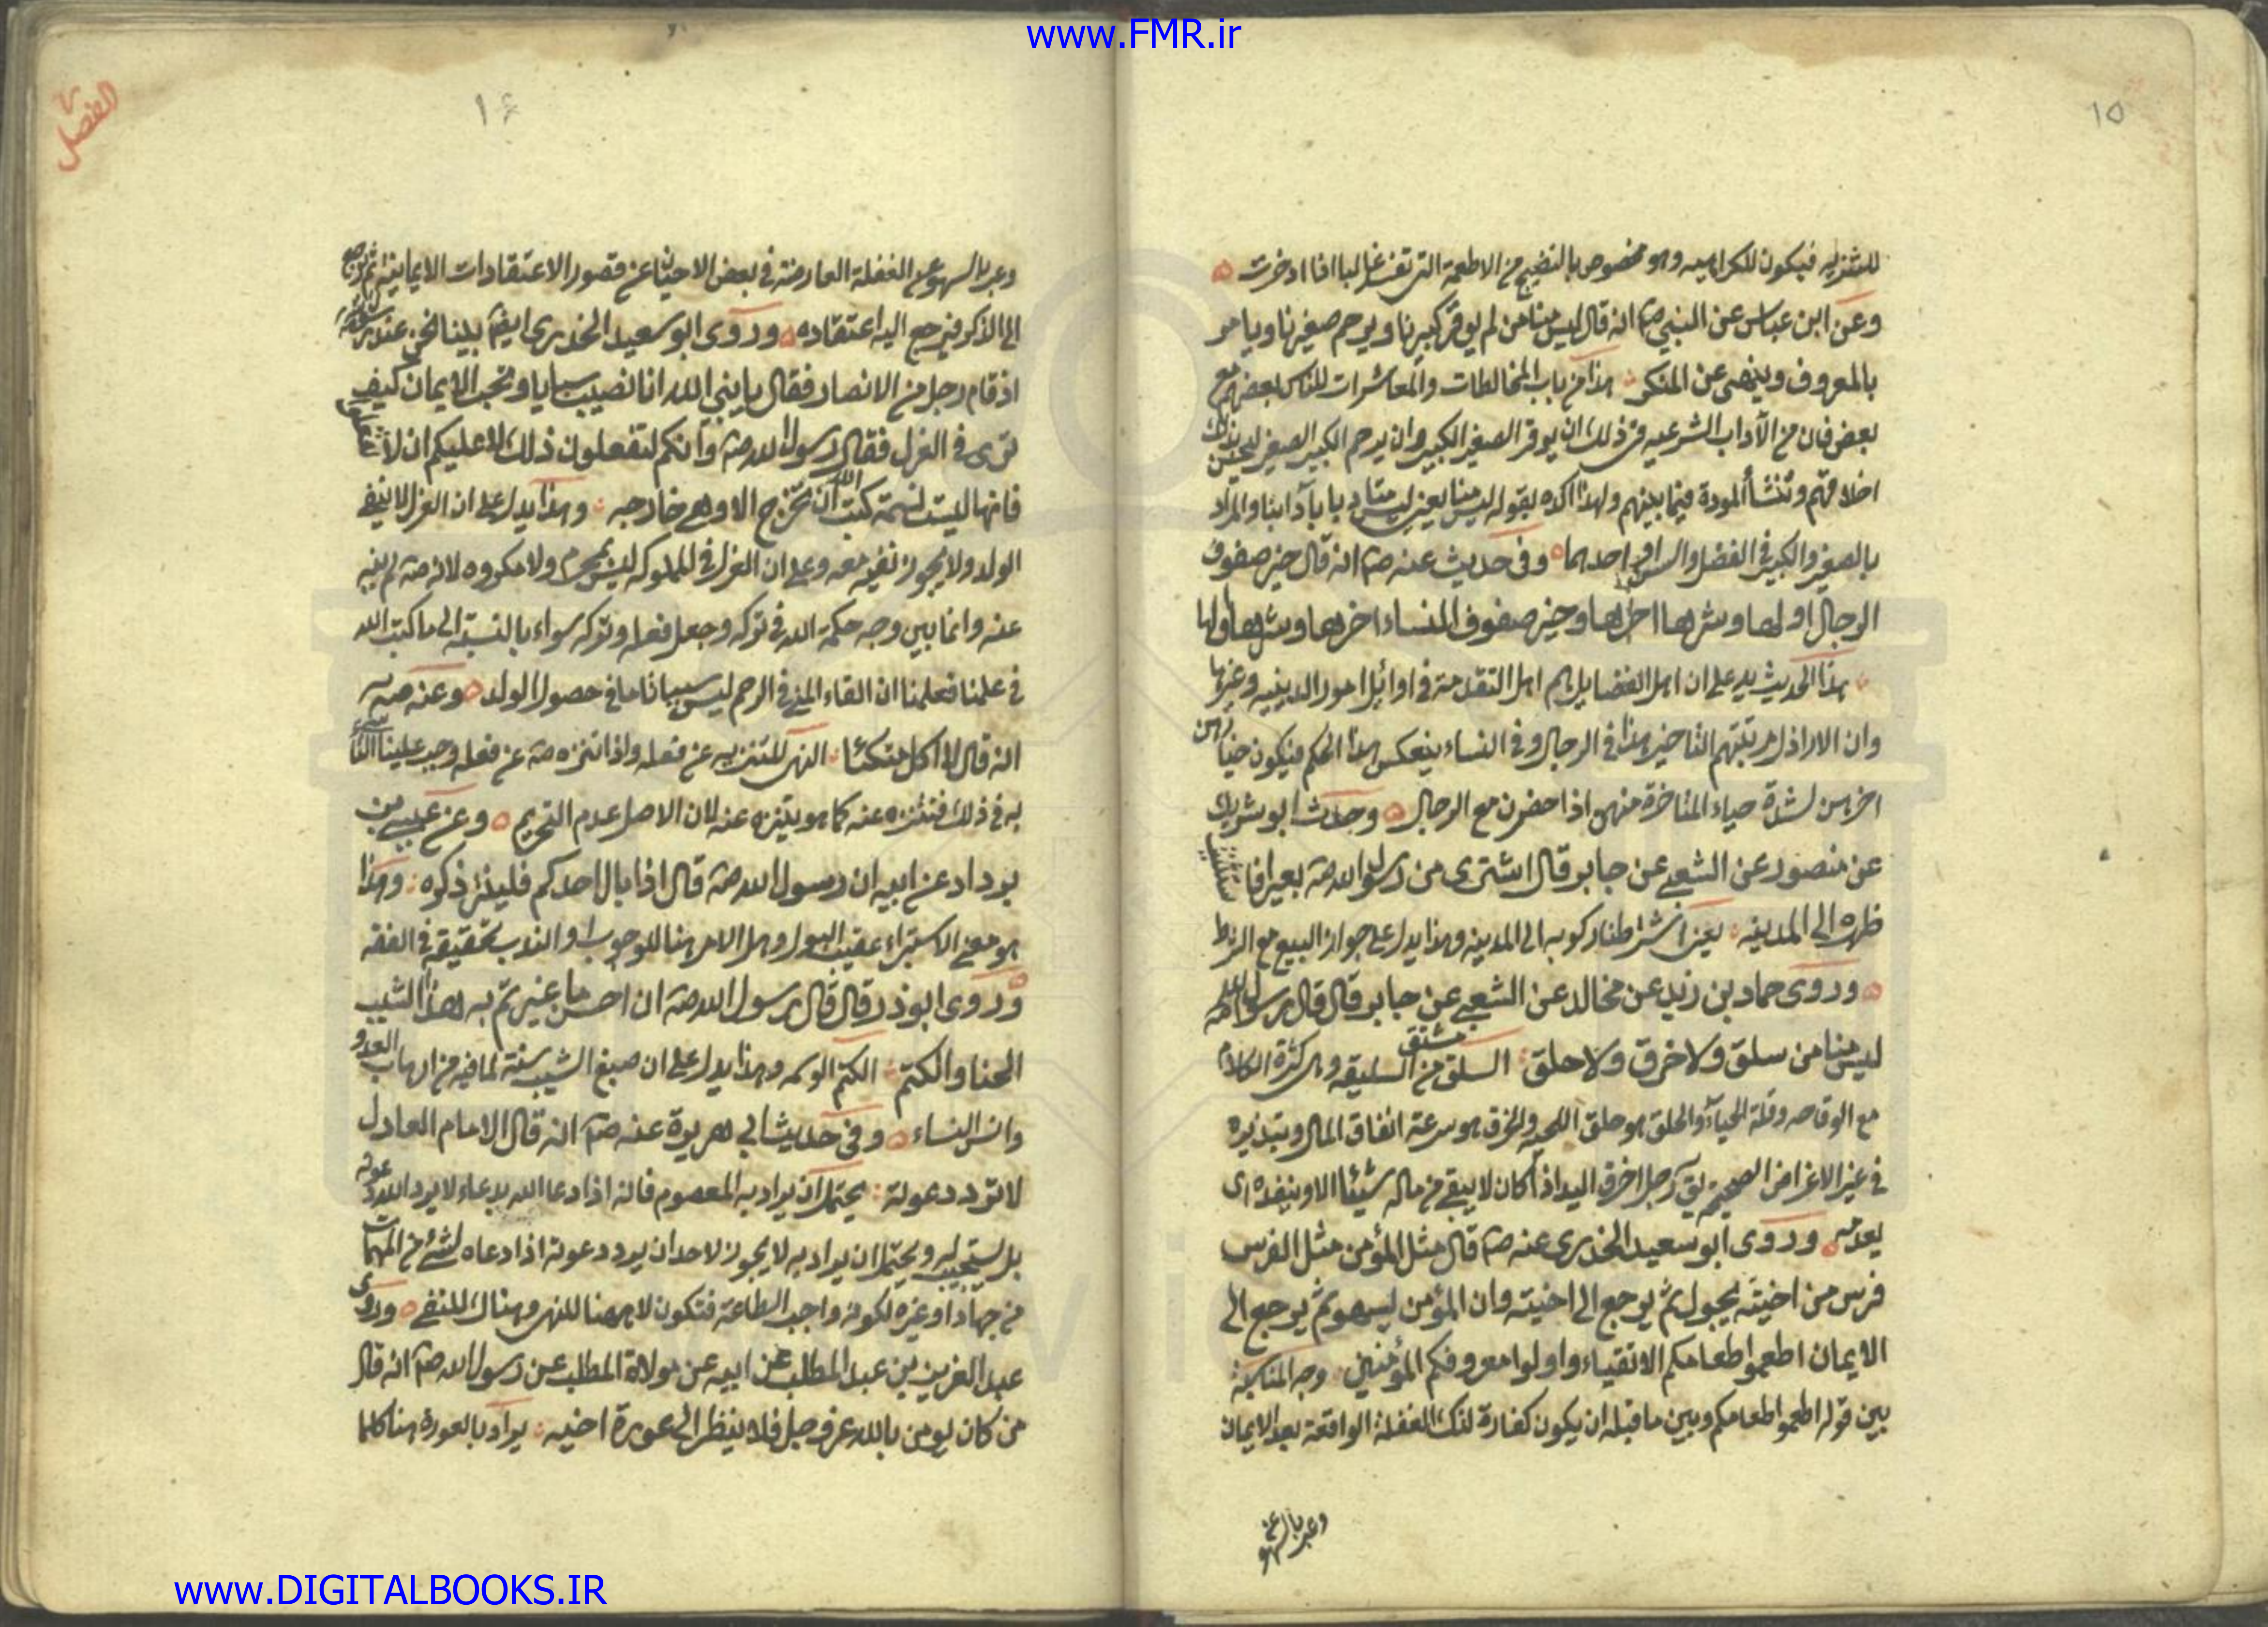 www.FMR.ir
١٥
للتنزيه فيكون للكراهيه وهو مخصوص بالنضيج من الاطعمة التى تفسد غالبا اذا ادخرت
وعن ابن عباس عن النبي صم انه قال ليس منا من لم يوقر كبيرنا ويرحم صغيرنا ويامر
بالمعروف وينهى عن المنكر هذا من باب المخالطات والمعاشرات للناس بعضهم مع
بعض فان من الآداب الشرعيه فى ذلك ان يوقر الصغير الكبير وان يرحم الكبير الصغير ليحسن بذلك
اخلاقهم وتنشأ المودة فيما بينهم ولهذا اكده بقوله ليس منا يعنى ليس متادبا بآدابنا والمراد
بالصغير والكبير فى الفضل والسن او فى احدهما وفى حديث عنه صم انه قال خير صفوف
الرجال اولها وشرها اخرها وخير صفوف النساء اخرها وشرها اولها
هذا الحديث يدل على ان اهل الفضايل هم اهل التقدمة فى اوائل امور الدينيه وغيرها
وان الاراذل مرتبتهم التاخير هذا فى الرجال وفى النساء ينعكس هذا الحكم فيكون خيارهن
اخرهن لشدة حياء المتاخرة منهن اذا حضرن مع الرجال وحدث ابو شريك
عن منصور عن الشعبي عن جابر قال اشترى من رسول الله صه بعيرا فا
ظهره الى المدينه يعنى اشترطنا ركوبه الى المدينه وهذا يدل على جواز البيع مع الشرط
وروى حماد بن زيد عن مخالد عن الشعبي عن جابر قال قال رسول الله صه
ليس منا من سلق ولا خرق ولا حلق السلق مشتق من السليقه وهى كثرة الكلام
مع الوقاحه وقلة الحياء والحلق هو حلق اللحيه والخرق هو سرعة انفاق المال وتبذيره
فى غير الاغراض الصحيحه يق رجل اخرق اليد اذا كان لا يبقى من ماله شيئا الا وينفده اى
يعدمه وروى ابو سعيد الخدرى عنه صم قال مثل المؤمن مثل الفرس
فرس من اخيته يجول ثم يرجع الى اخيته وان المؤمن ليسهو ثم يرجع الى
الايمان اطعموا طعامكم الاتقياء واولوا معروفكم المؤمنين وجه المناسبة
بين قوله اطعموا طعامكم وبين ما قبله ان يكون كفارة لتلك الغفلة الواقعة بعد الايمان
وعبر بالسهو عن
١٤
الفصل
وعبر بالسهو عن الغفلة العارضة فى بعض الاحيان عن قصور الاعتقادات الايمانية ثم يرجع
الى الذكر فيرجع اليه اعتقاده وروى ابو سعيد الخدرى ايضا بينا نحن عند رسول الله
اذ قام رجل من الانصار فقال يا نبي الله انا نصيب سبايا ونحب الايمان كيف
ترى فى العزل فقال رسول الله صه وانكم لتفعلون ذلك لا عليكم ان لا تفعلوا
فانها ليست نسمة كتب الله ان تخرج الا وهى خارجه وهذا يدل على ان العزل لا ينفى
الولد ولا يجوز نفيه معه وعلى ان العزل فى المملوكه ليس بمحرم ولا مكروه لانه صه لم ينه
عنه وانما بين وجه حكمة الله فى تركه وجعل فعله وتركه سواء بالنسبة الى ما كتب الله
فى علمنا فعلمنا ان القاء المنى فى الرحم ليس سببا تاما فى حصول الولد وعنه صه
انه قال لا اكل متكئا النهى للتنزيه عن فعله واذا تنزه صه عن فعله وجب علينا التاسى
به فى ذلك فنتنزه عنه كما هو يتنزه عنه لان الاصل عدم التحريم وعن عيسى بن
يرداد عن ابيه ان رسول الله صه قال اذا بال احدكم فلينثر ذكره وهذا
هو معنى الاستبراء عقيب البول وهل الامر هنا للوجوب او الندب تحقيقه فى الفقه
وروى ابو ذر قال قال رسول الله صه ان احسن ما غيرتم به هذا الشيب
الحنا والكتم الكتم الوسمه وهذا يدل على ان صبغ الشيب سنة لما فيه من ارهاب العدو
وانس النساء وفى حديث ابى هريرة عنه صم انه قال الامام العادل
لا ترد دعوته يحتمل ان يراد به المعصوم فانه اذا دعا الله بدعاء لا يرد الله دعوته
بل يستجيبه ويحتمل ان يراد به لا يجوز لاحد ان يرد دعوته اذا دعاه لشئ من المهمات
من جهاد او غيره لكونه واجب الطاعة فتكون لا هيهنا للنهى وهناك للنفى وروى
عبد العزيز بن عبد المطلب عن ابيه عن مولاة المطلب عن رسول الله صم انه قال
من كان يومن بالله عز وجل فلا ينظر الى عورة اخيه يراد بالعورة هنا كلما
www.DIGITALBOOKS.IR